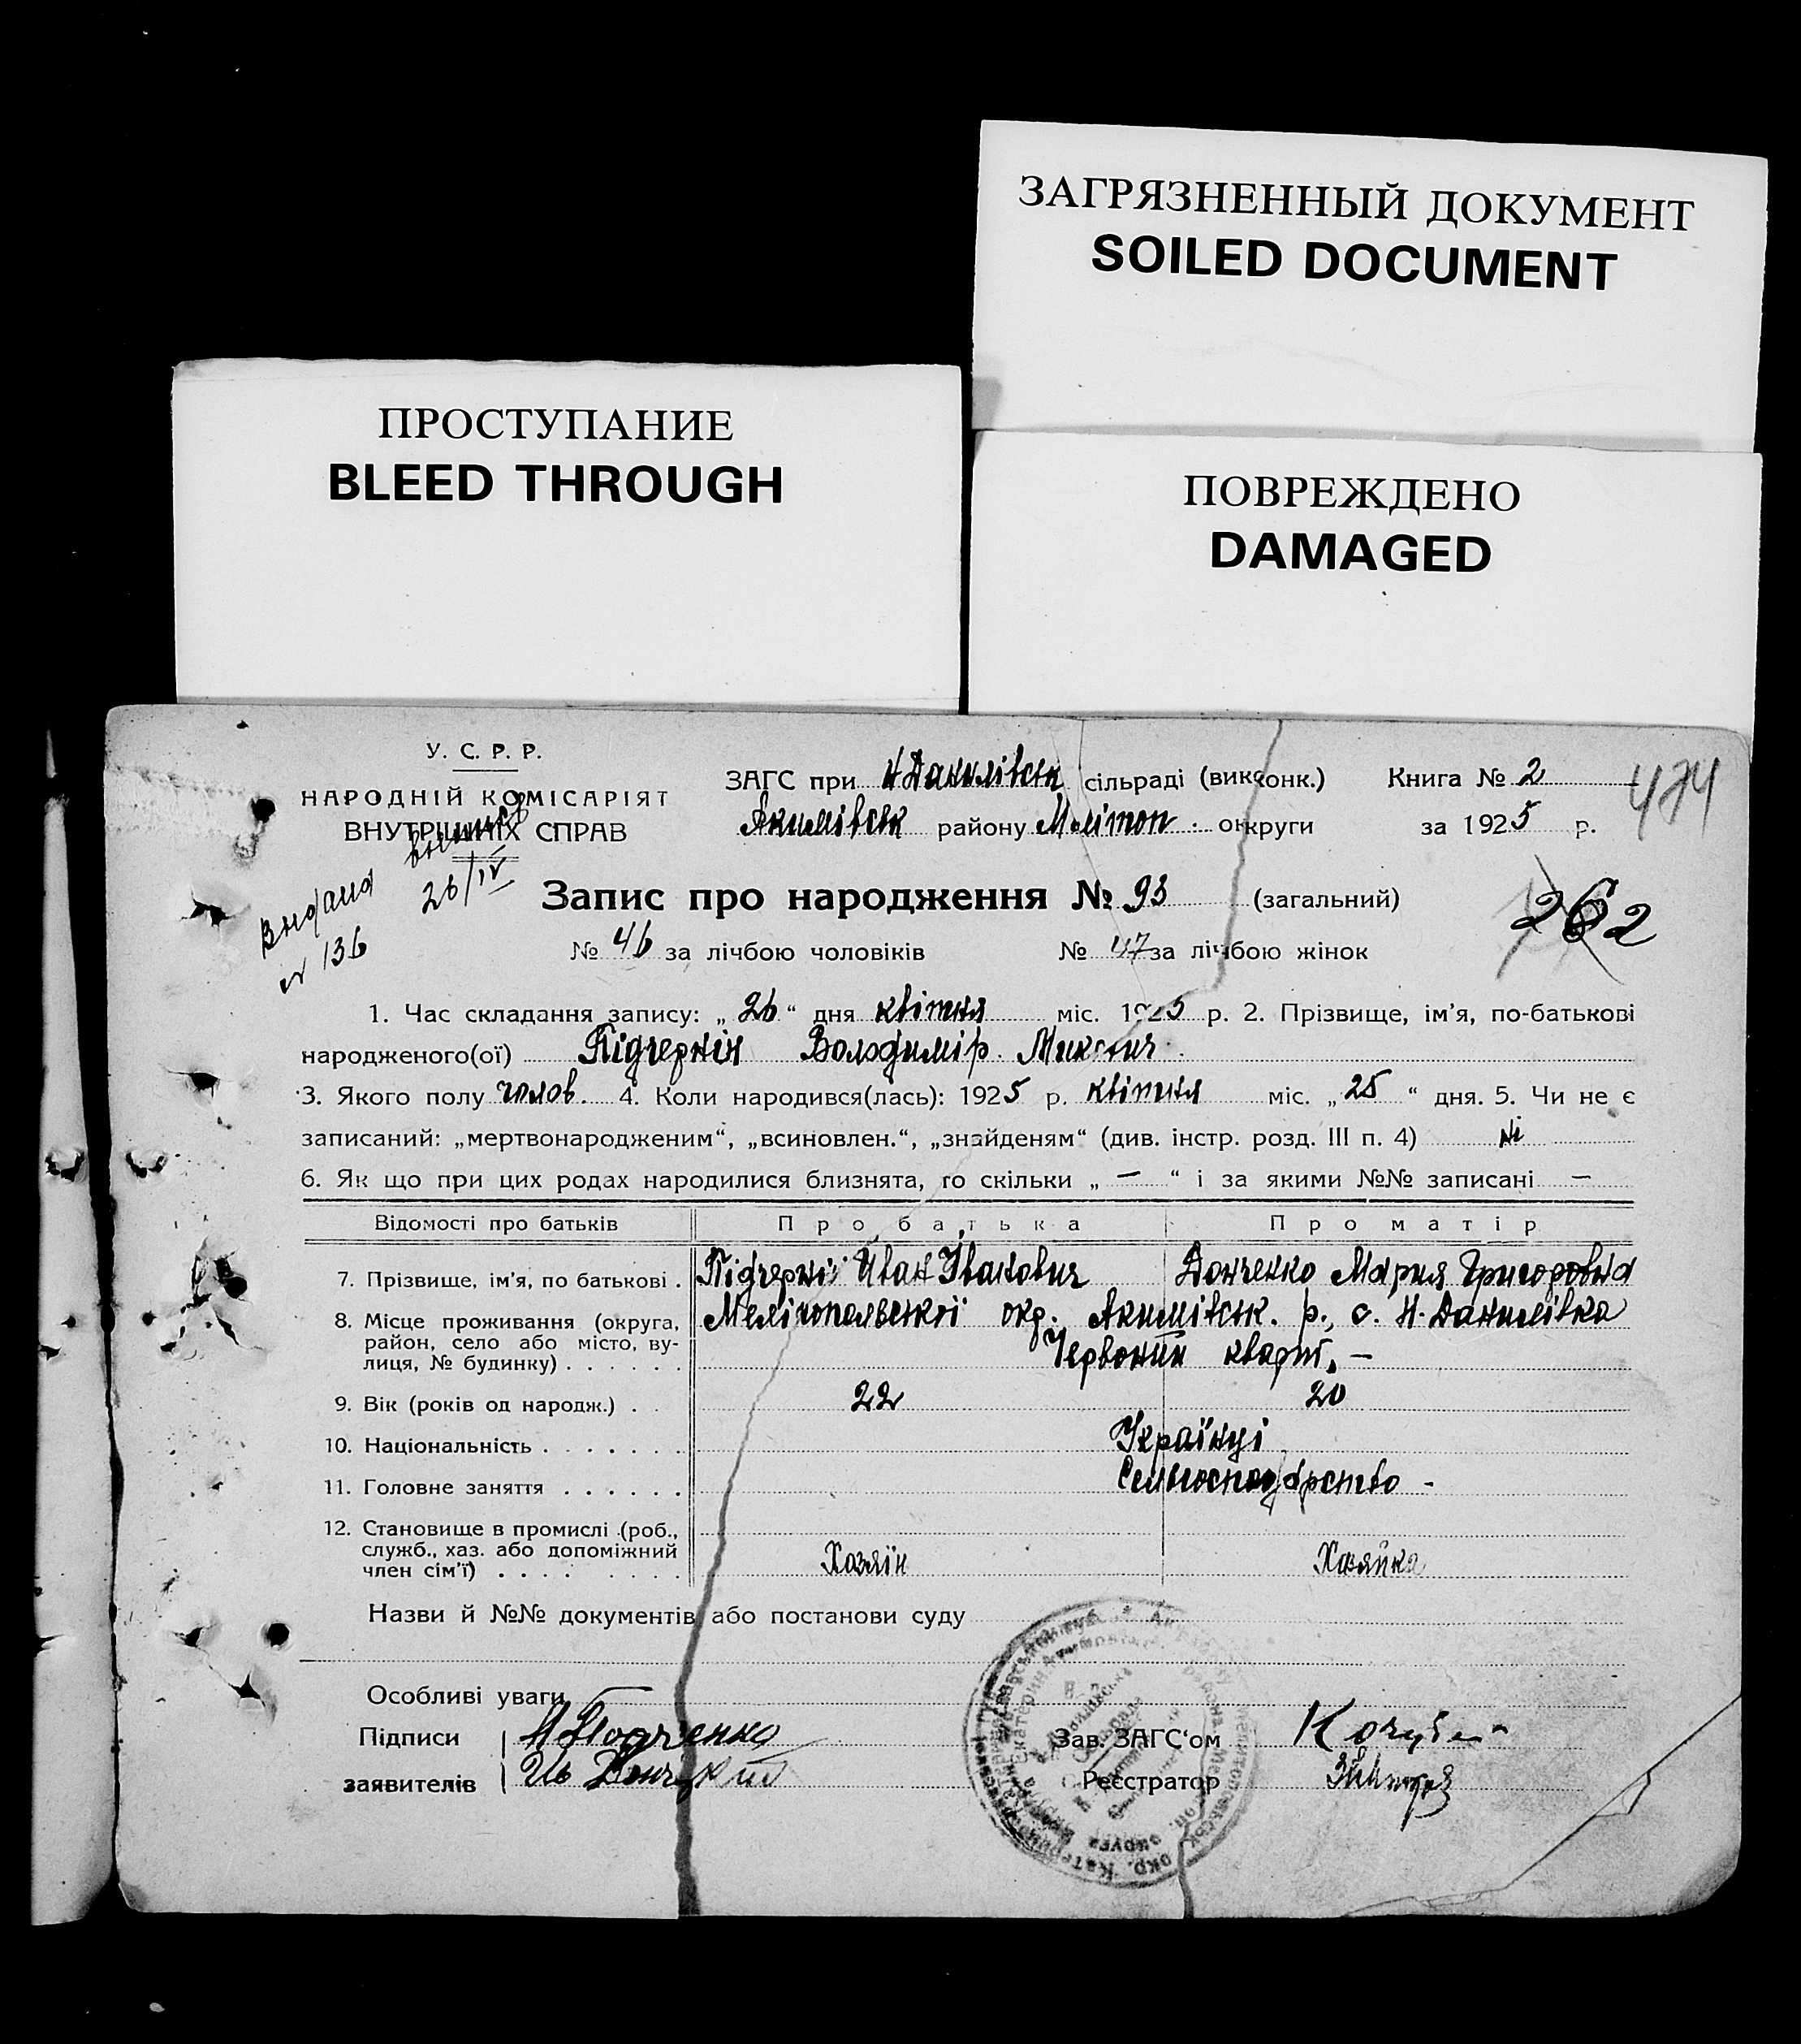 ЗАГРЯЗНЕННЫЙ ДОКУМЕНТ
SOILED DOCUMENT
ПРОСТУПАНИЕ
BLEED THROUGH
ПОВРЕЖДЕНО
DAMAGED
У. С. Р. Р.
НАРОДНІЙ КОМІСАРІЯТ
ВНУТРІШНІХ СПРАВ
ЗАГС при Н Данилівськ сільраді (виконк.) Книга № 2
474
Акимівськ району Мелітоп. округи за 1925 р.
26/IV
Видана
136
Запис про народження № 93 (загальний)
262
№ 46 за лічбою чоловіків № 47 за лічбою жінок
1. Час складання запису: „ 26 “ дня квітня міс. 1925 р. 2. Прізвище, ім'я, по-батькові
народженого(ої) Підчерній Володимір
3. Якого полу чолов. 4. Коли народився(лась): 1925 р. квітня міс. „ 25 “ дня. 5. Чи не є
записаний: „мертвонародженим“, „всиновлен.“, „знайденям“ (див. інстр. розд. III п. 4) Ні
6. Як що при цих родах народилися близнята, то скільки „ — “ і за якими №№ записані —
Відомості про батьків Про батька Про матір
7. Прізвище, ім'я, по батькові . Підчерній Іван Іванович Донченко Мария Григоровна
8. Місце проживання (округа, район, село або місто, вулиця, № будинку) . . . . . . Мелітопольської окр. Акимівськ. р., с. Н. Данилівка
Червоний кварт. —
9. Вік (років од народж.) . . 22 20
10. Національність . . . . . . . Українці
11. Головне заняття . . . . . . Сельгосподарство -
12. Становище в промислі (роб., служб., хаз. або допоміжний член сім'ї) . . . . Хазяїн Хазяйка
Назви й №№ документів або постанови суду
Особливі уваги
Підписи
заявителів
Зав. ЗАГС'ом
Реєстратор